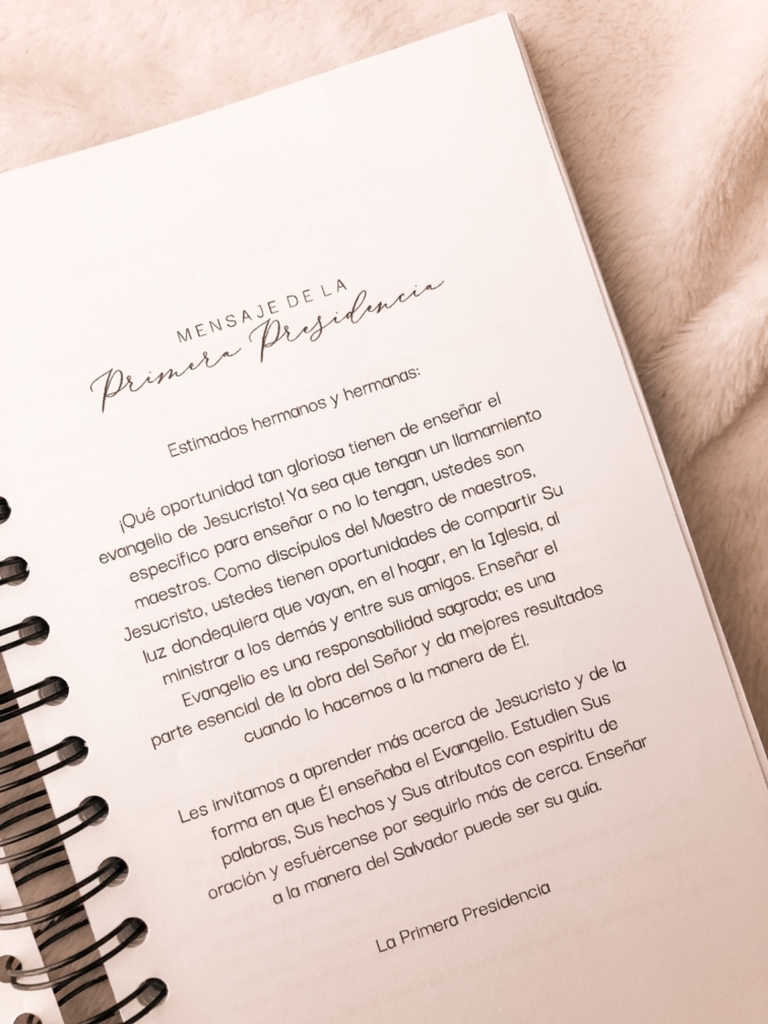 MENSAJE DE LA
Primera Presidencia
Estimados hermanos y hermanas:
¡Qué oportunidad tan gloriosa tienen de enseñar el
evangelio de Jesucristo! Ya sea que tengan un llamamiento
específico para enseñar o no lo tengan, ustedes son
maestros. Como discípulos del Maestro de maestros,
Jesucristo, ustedes tienen oportunidades de compartir Su
luz dondequiera que vayan, en el hogar, en la Iglesia, al
ministrar a los demás y entre sus amigos. Enseñar el
Evangelio es una responsabilidad sagrada; es una
parte esencial de la obra del Señor y da mejores resultados
cuando lo hacemos a la manera de Él.
Les invitamos a aprender más acerca de Jesucristo y de la
forma en que Él enseñaba el Evangelio. Estudien Sus
palabras, Sus hechos y Sus atributos con espíritu de
oración y esfuércense por seguirlo más de cerca. Enseñar
a la manera del Salvador puede ser su guía.
La Primera Presidencia